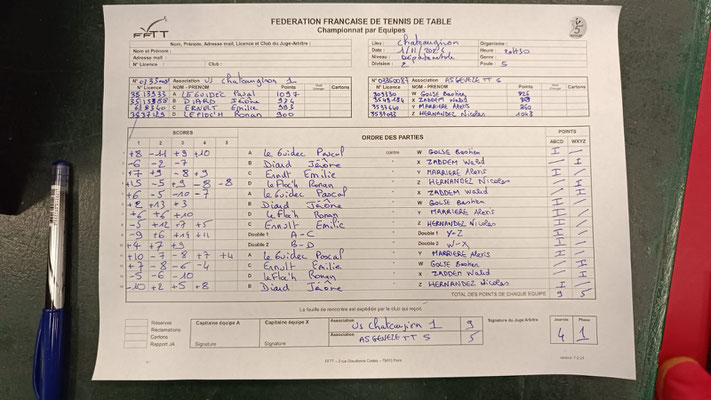 FEDERATION FRANCAISE DE TENNIS DE TABLE
Championnat par Equipes
FFTT
Nom, Prénom, Adresse mail, Licence et Club du Juge-Arbitre
Nom et Prénom :
Adresse mail :
N° Licence Club :
Lieu : Chateaugiron Organisme :
Date : Heure : 20H30
Niveau : Départementale Genre :
Division : 2 Poule : 5
Association US Chateaugiron 1
Association ASGEVEZE TT 5
N° Licence NOM - PRENOM Points Cartons
N° Licence NOM - PRENOM Points Cartons
A LE GUIDEC Pascal 1097
B DIARD Jérôme
C ERNULT Emilie
D LE FLOC'H Ronan 900
W GOLSE Bastien
X ZADDEM Walid
Y MARRIERE Alexis
Z HERNANDEZ Nicolas
SCORES ORDRE DES PARTIES POINTS
1 2 3 4 5 ABCD WXYZ
+8 -11 +9 +10 A Le Guidec Pascal contre W GOLSE Bastien I /
-6 -2 -7 B Diard Jérôme X ZADDEM Walid / I
+7 +9 -8 +9 C Ernult Emilie Y MARRIERE Alexis I /
-5 +9 -8 -8 D Le Floc'h Ronan Z HERNANDEZ Nicolas / I
+6 -5 -10 -7 A Le Guidec Pascal X ZADDEM Walid / I
+2 +13 +3 B Diard Jérôme W GOLSE Bastien I /
+6 +6 +10 D Le Floc'h Ronan Y MARRIERE Alexis I /
-5 +12 +7 +5 C Ernult Emilie Z HERNANDEZ Nicolas I /
-9 +6 +11 Double 1 A-C Double 1 Y-Z I /
+4 +7 +9 Double 2 B-D Double 2 W-X I /
+10 -7 -8 +7 +4 A Le Guidec Pascal Y MARRIERE Alexis I /
+7 -8 -6 -4 C Ernult Emilie W GOLSE Bastien / I
-5 -6 -10 D Le Floc'h Ronan X ZADDEM Walid / I
-10 +2 +5 +8 B Diard Jérôme Z HERNANDEZ Nicolas I /
TOTAL DES POINTS DE CHAQUE EQUIPE 9 5
La feuille de rencontre est expédiée par le club qui reçoit.
Réserves
Réclamations
Cartons
Rapport JA
Capitaine équipe A
Signature
Capitaine équipe X
Signature
Association
US Chateaugiron 1 9
Association
ASGEVEZE TT 5 5
Signature du Juge-Arbitre
Journée Phase
4 1